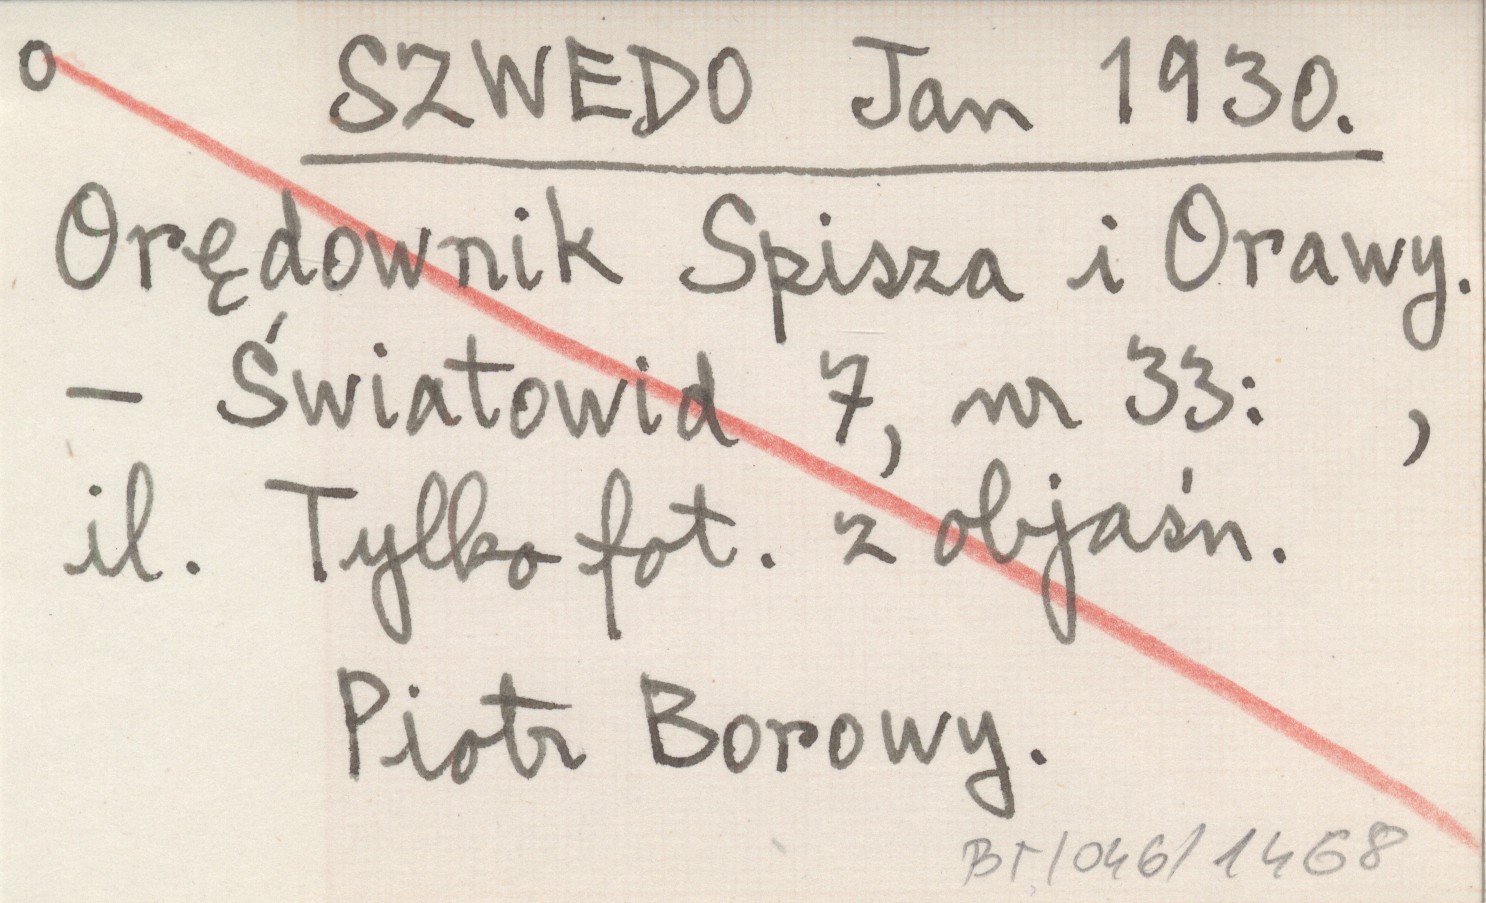 o SZWEDO Jan 1930.
Orędownik Spisza i Orawy.
– Światowid 7, nr 33: ,
il. Tylko fot. z objaśn.
Piotr Borowy.
BT/046/1468